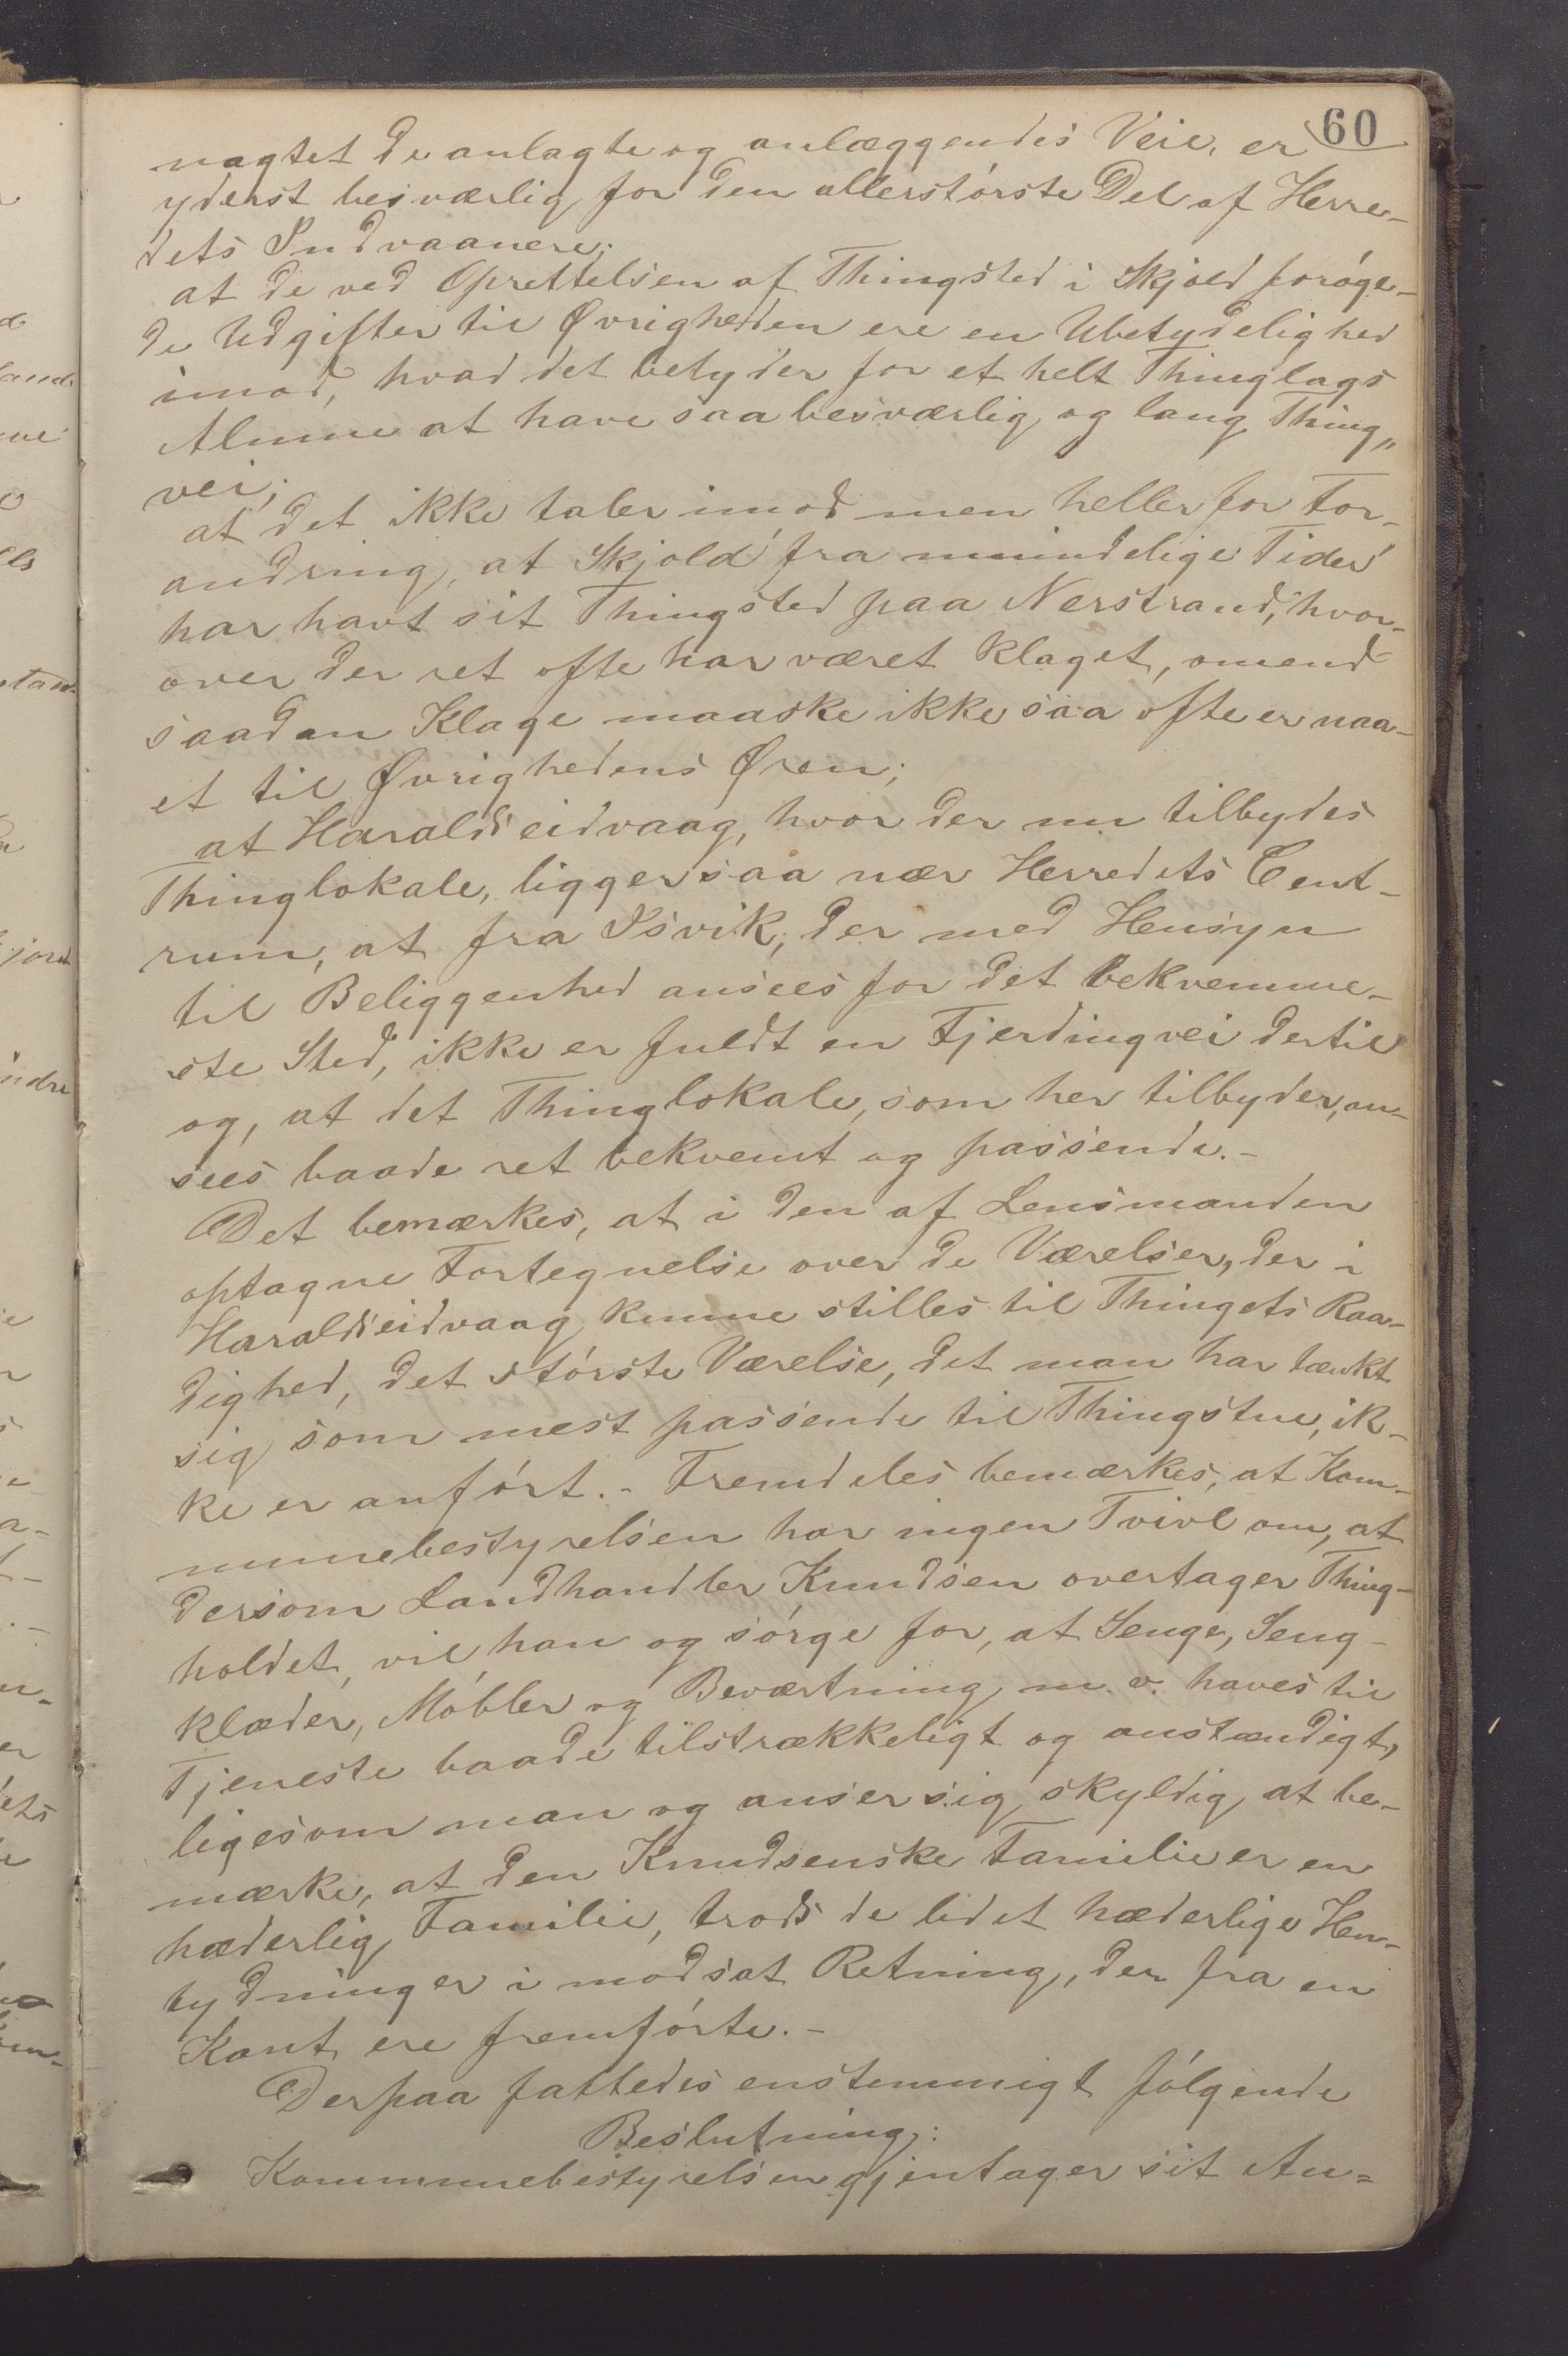 60
nagtet de anlagte og anlæggendes Veie, er
yderst besværlig for den allerstörste Del af Herre-
dets Indvaanere;
at de ved Oprettelsen af Thingsted i Skjold foröge-
de Udgifter til Øvrigheden ere en Ubetydelighed
imod, hvad det betyder for et helt Thinglags
Almue at have saa besværlig og lang Thing„
vei;
at det ikke taler imod men heller for For-
andring, at Skjold fra mindelige Tider
har havt sit Thingsted paa Nerstrand, hvor-
over der ret ofte har været klaget, omend
saadan Klage maaske ikke saa ofte er naa-
et til Øvrighedens Øren;
at Haraldseidvaag, hvor der nu tilbydes
Thinglokale, ligger saa nær Herredets Cent-
rum, at fra Isvik, der med Hensyn
til Beliggenhed ansees for det bekvemme-
ste Sted, ikke er fuldt en Fjerdingvei dertil
og, at det Thinglokale, som her tilbyder, an-
sees baade ret bekvemt og passende.-
Det bemærkes, at i den af Lensmanden
optagne Fortegnelse over de Værelser, der i
Haraldseidvaag kunne stilles til Thingets Raa-
dighed, det störste Værelse, det man har tænkt
sig som mest passende til Thingstue, ik-
ke er anfört.- Fremdeles bemærkes, at Kom-
munebestyrelsen har ingen Tvivl om, at
dersom Landhandler Knudsen overtager Thing-
holdet, vil han og sörge for, at Senge, Seng-
klæder, Möbler og Beværtning m. v. haves til
Tjeneste baade tilstrækkeligt og anstændigt,
ligesom man og anser sig skyldig at be-
mærke, at den Knudsenske Familie er en
hæderlig Familie, trods de lidet hæderlige Hen-
tydninger i modsat Retning, der fra en
Kant ere fremförte.-
Derpaa fattedes enstemmigt fölgende
Beslutning:
Kommunebestyrelsen gjentager sit An-